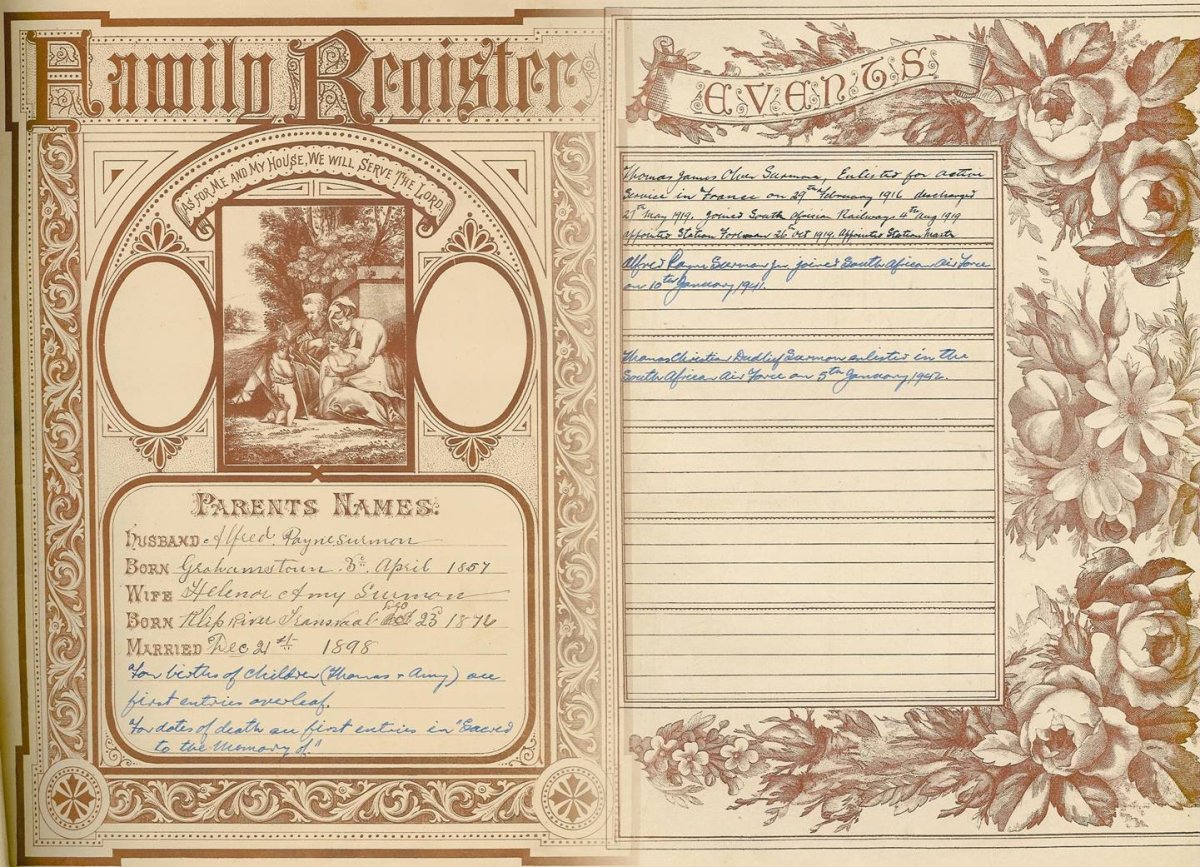 Family Register.
AS FOR ME AND MY HOUSE, WE WILL SERVE THE LORD.
PARENTS NAMES.
HUSBAND Alfred Payne Surmon
BORN Grahamstown 3rd April 1857
WIFE Helenor Amy Surmon
BORN Klip River Transvaal 23rd 1876
MARRIED Dec 21st 1898
For births of children (Thomas + Amy) see
first entries overleaf.
For dates of death see first entries in "Sacred
to the Memory of"
EVENTS.
Thomas James Oliver Surmon, Enlisted for active
Service in France on 29th February 1916 discharged
27th May 1919. Joined South African Railways 4th Aug 1919
Appointed Station Foreman 26th Oct 1919. Appointed Station Master
Alfred Payne Surmon jnr joined South African Air Force
on 10th January 1941.
Thomas Christian Dudley Surmon enlisted in the
South African Air Force on 5th January 1942.